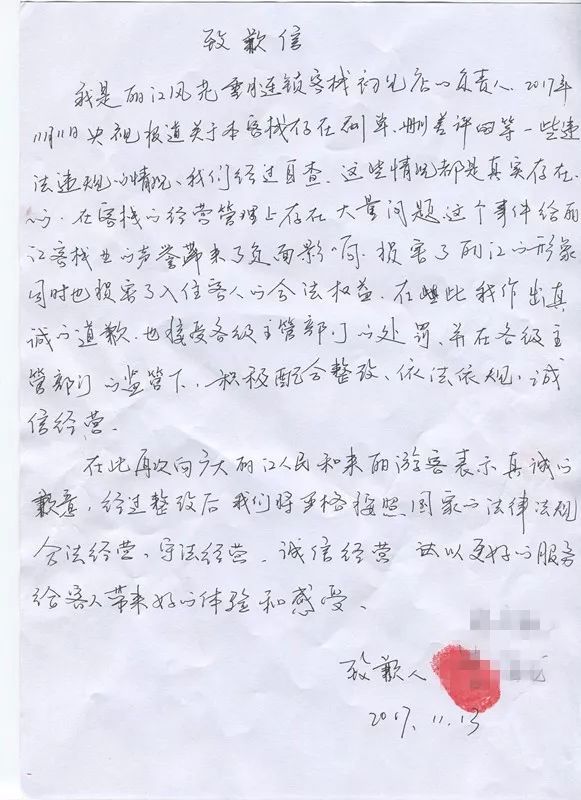 致歉信
我是丽江风花雪月连锁客栈初见店的负责人。2017年
11月11日央视报道关于本客栈存在刷单、删差评等一些违
法违规的情况、我们经过自查、这些情况都是真实存在
的。在客栈的经营管理上存在大量问题这个事件给丽
江客栈业的声誉带来了负面影响。损害了丽江的形象
同时也损害了入住客人的合法权益。在此我作出真
诚的道歉。也接受各级主管部门的处罚、并在各级主
管部门的监管下、积极配合整改、依法依规、诚
信经营。
在此再次向广大丽江人民和来丽游客表示真诚的
歉意,经过整改后我们将严格按照国家的法律法规
合法经营、守法经营、诚信经营 以更好的服务
给客人带来好的体验和感受、
致歉人
2017.11.13